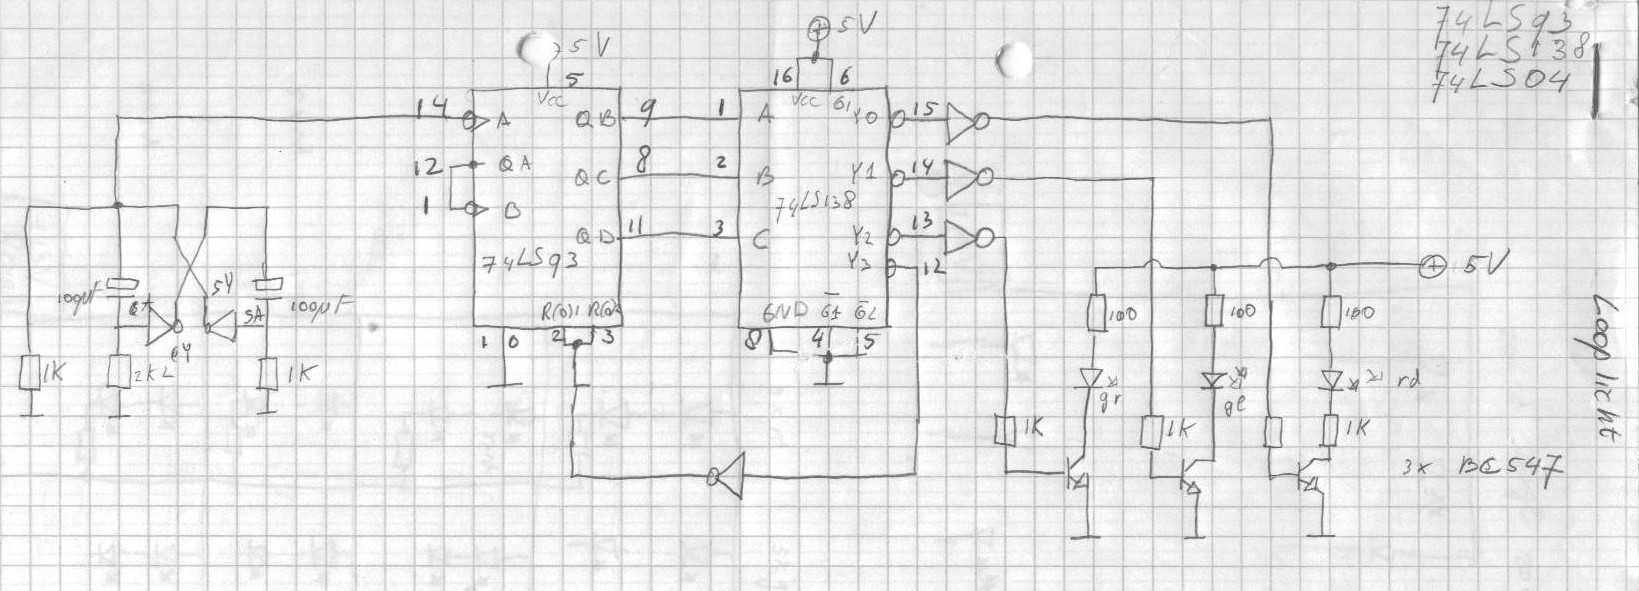 74LS93
74LS138
74LS04
Looplicht
5V
5
Vcc
14
A
QB
9
12
QA
QC
8
1
B
QD
11
74LS93
R(0)1 R(0)2
10
2
3
5V
16
6
Vcc
G1
1
A
Y0
15
2
B
Y1
14
74LS138
3
C
Y2
13
Y3
12
GND
G1
G2
8
4
5
100µF
6A
6Y
5Y
5A
100µF
1K
2K2
1K
5V
100
100
100
gr
ge
rd
1K
1K
1K
3x BC547